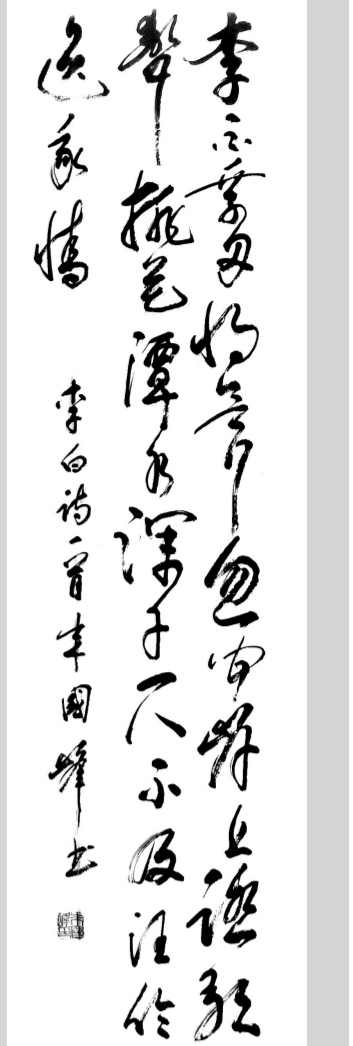 李白乘舟將欲行忽聞岸上踏歌
聲桃花潭水深千尺不及汪倫
送我情
李白詩一首國書